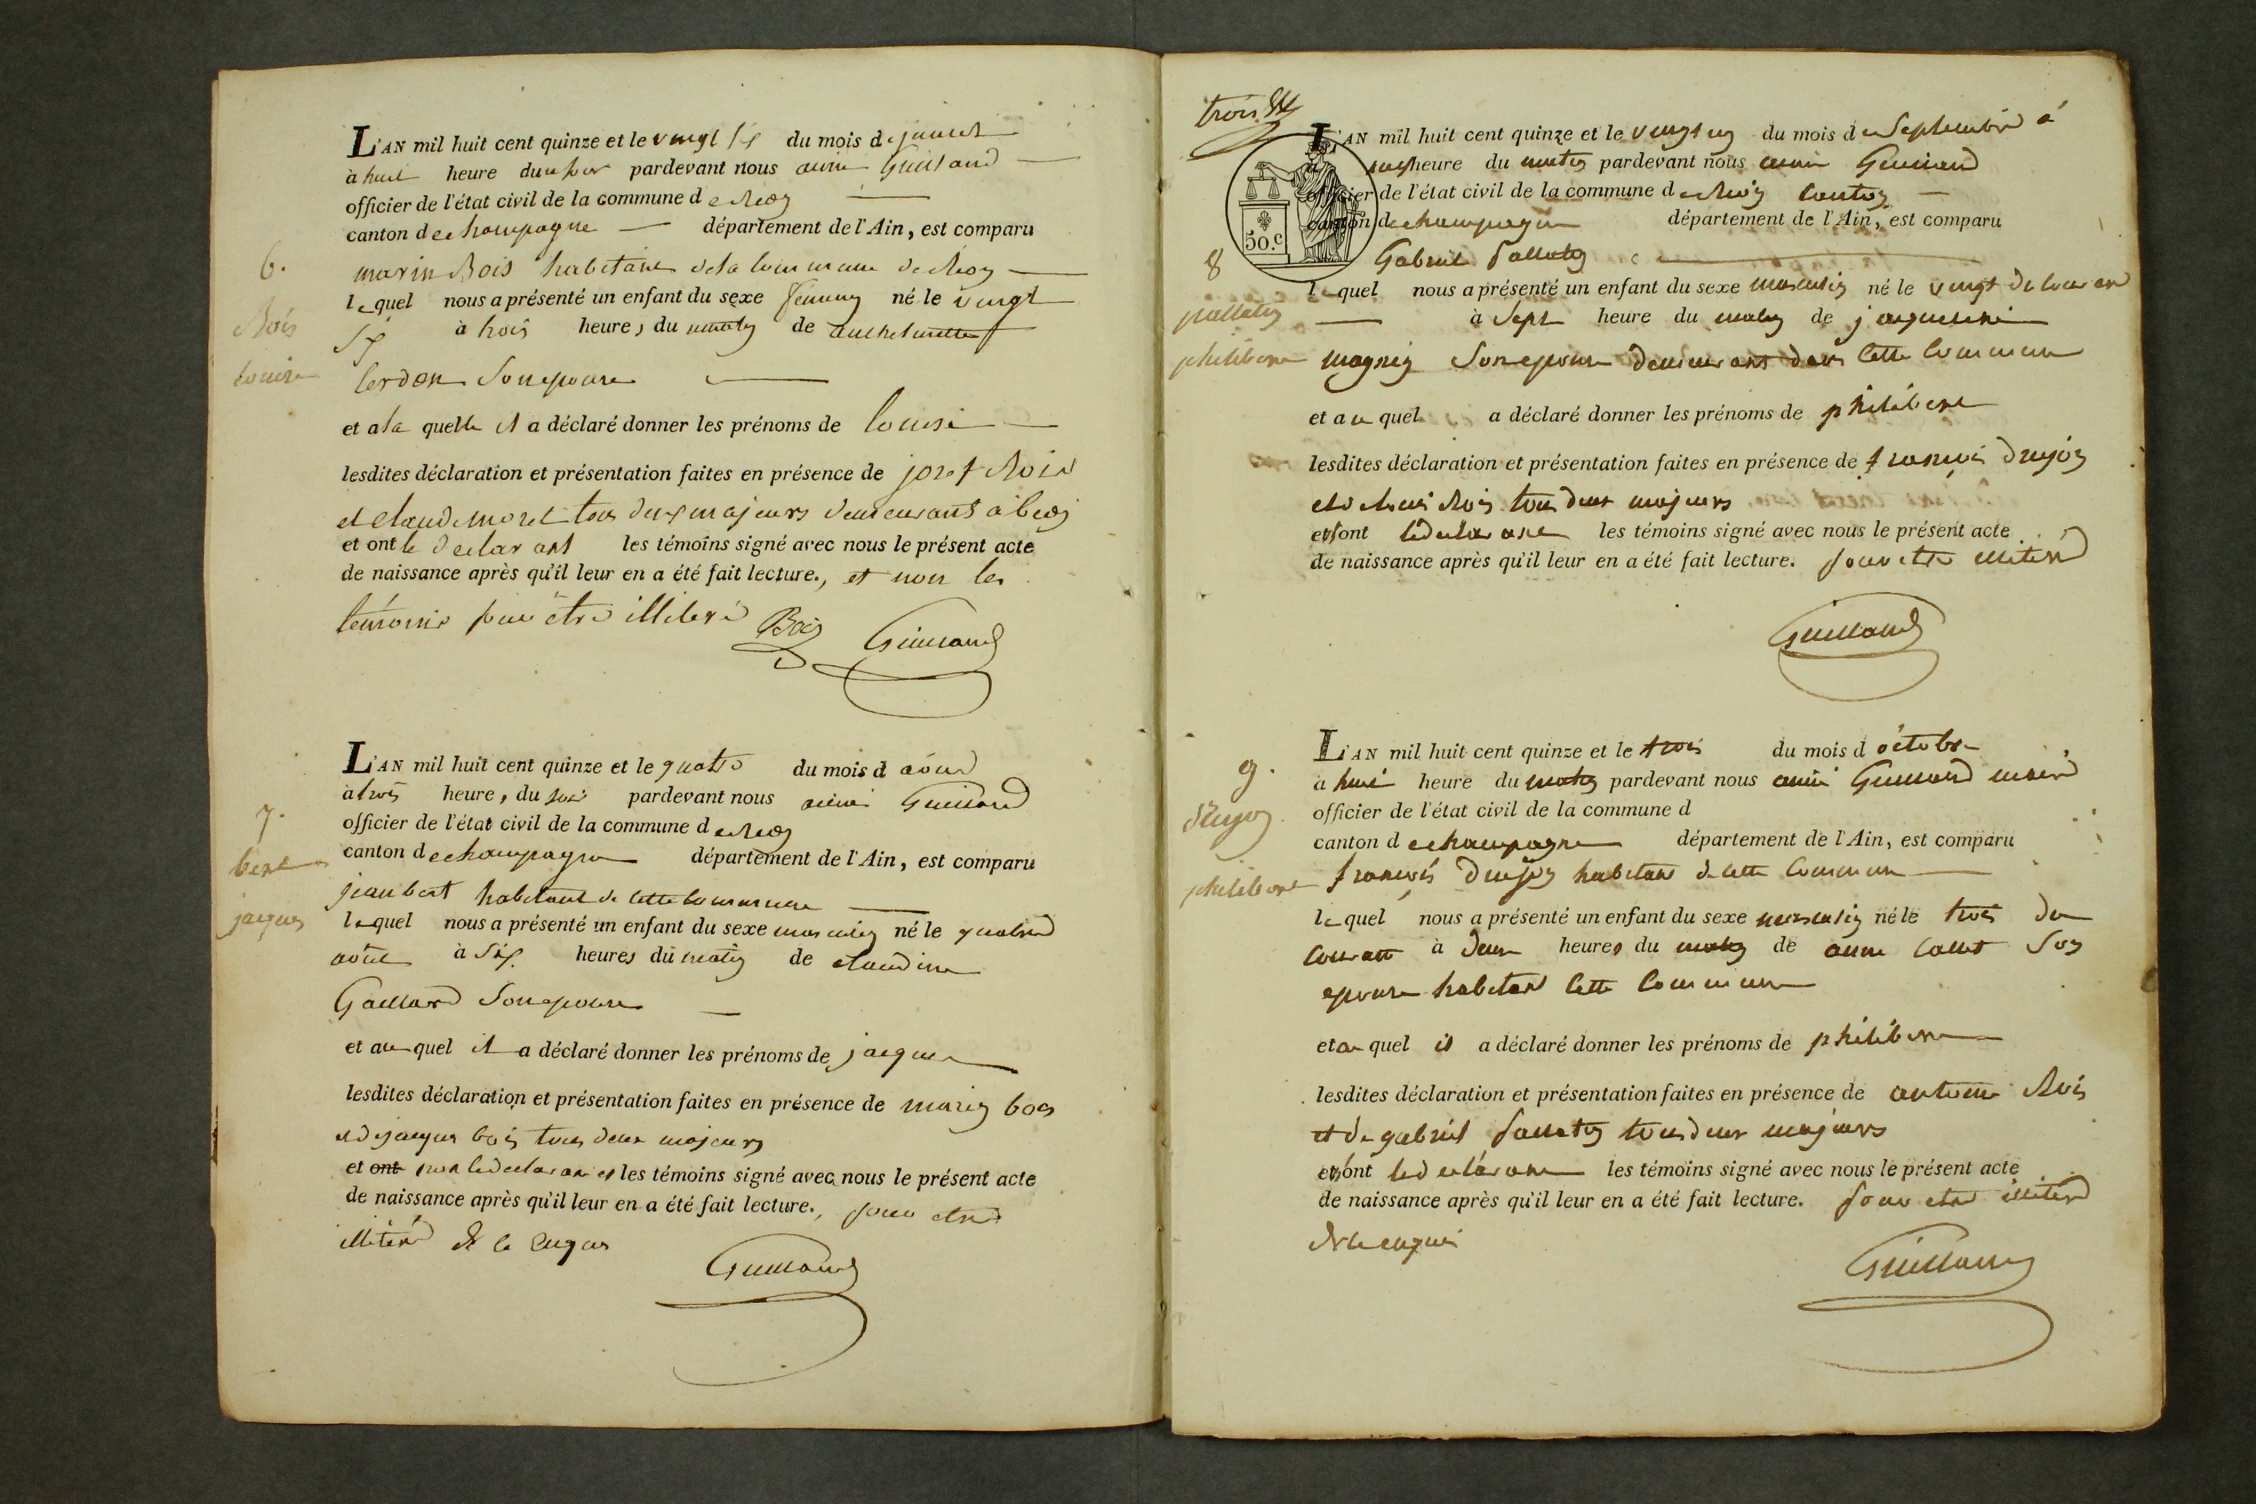 L'AN mil huit cent quinze et le vingt six du mois de
à huit heure du soir pardevant nous Guilland
officier de l'état civil de la commune de
canton de champagne département de l'Ain, est comparu
6.
marin Bois habitant de la commune de
lequel nous a présenté un enfant du sexe né le vingt
Bois
six à trois heures du matin de
louise
son epouse
et a la quelle il a déclaré donner les prénoms de louise
lesdites déclaration et présentation faites en présence de josef Bois
et claude moret tous deux majeurs demeurants a
et ont le declarant les témoins signé avec nous le présent acte
de naissance après qu'il leur en a été fait lecture., et non les
temoins pour être illiteré
Bois Guilland
L'AN mil huit cent quinze et le quatre du mois d août
à trois heures du soir pardevant nous Guilland
7.
officier de l'état civil de la commune de
canton de champagne département de l'Ain, est comparu
bert
jean bert habitant de cette commune
jaques
lequel nous a présenté un enfant du sexe masculin né le quatre
août à six heures du matin de claudine
Gaillard son epouse
et au quel il a déclaré donner les prénoms de jaques
lesdites déclaration et présentation faites en présence de marin bois
et de jaques bois tous deux majeurs
et ont non le declarant et les témoins signé avec nous le présent acte
de naissance après qu'il leur en a été fait lecture., pour etre
illiteré de ce enquis
Guilland
trois
L'AN mil huit cent quinze et le vingt du mois de Septembre à
heure du matin pardevant nous Guilland
officier de l'état civil de la commune de
canton de champagne département de l'Ain, est comparu
50.c
8
Gabriel
lequel nous a présenté un enfant du sexe masculin né le vingt du courant
à sept heure du matin de
philibert
son epouse demeurant dans cette commune
et au quel a déclaré donner les prénoms de philibert
lesdites déclaration et présentation faites en présence de francois drujon
et de Bois tous deux majeurs
et ont le declarant les témoins signé avec nous le présent acte
de naissance après qu'il leur en a été fait lecture. pour etre illiteré
Guilland
L'AN mil huit cent quinze et le trois du mois d octobre
à heure du matin pardevant nous Guilland maire
9.
officier de l'état civil de la commune d
drujon
canton de champagne département de l'Ain, est comparu
philibert
francois drujon habitant de cette commune
lequel nous a présenté un enfant du sexe masculin né le trois du
courant à deux heures du matin de anne collet son
epouse habitant cette commune
et au quel il a déclaré donner les prénoms de philibert
lesdites déclaration et présentation faites en présence de antoine Bois
et de gabriel tous deux majeurs
et ont le declarant les témoins signé avec nous le présent acte
de naissance après qu'il leur en a été fait lecture. pour etre illiteré
de ce enquis
Guilland